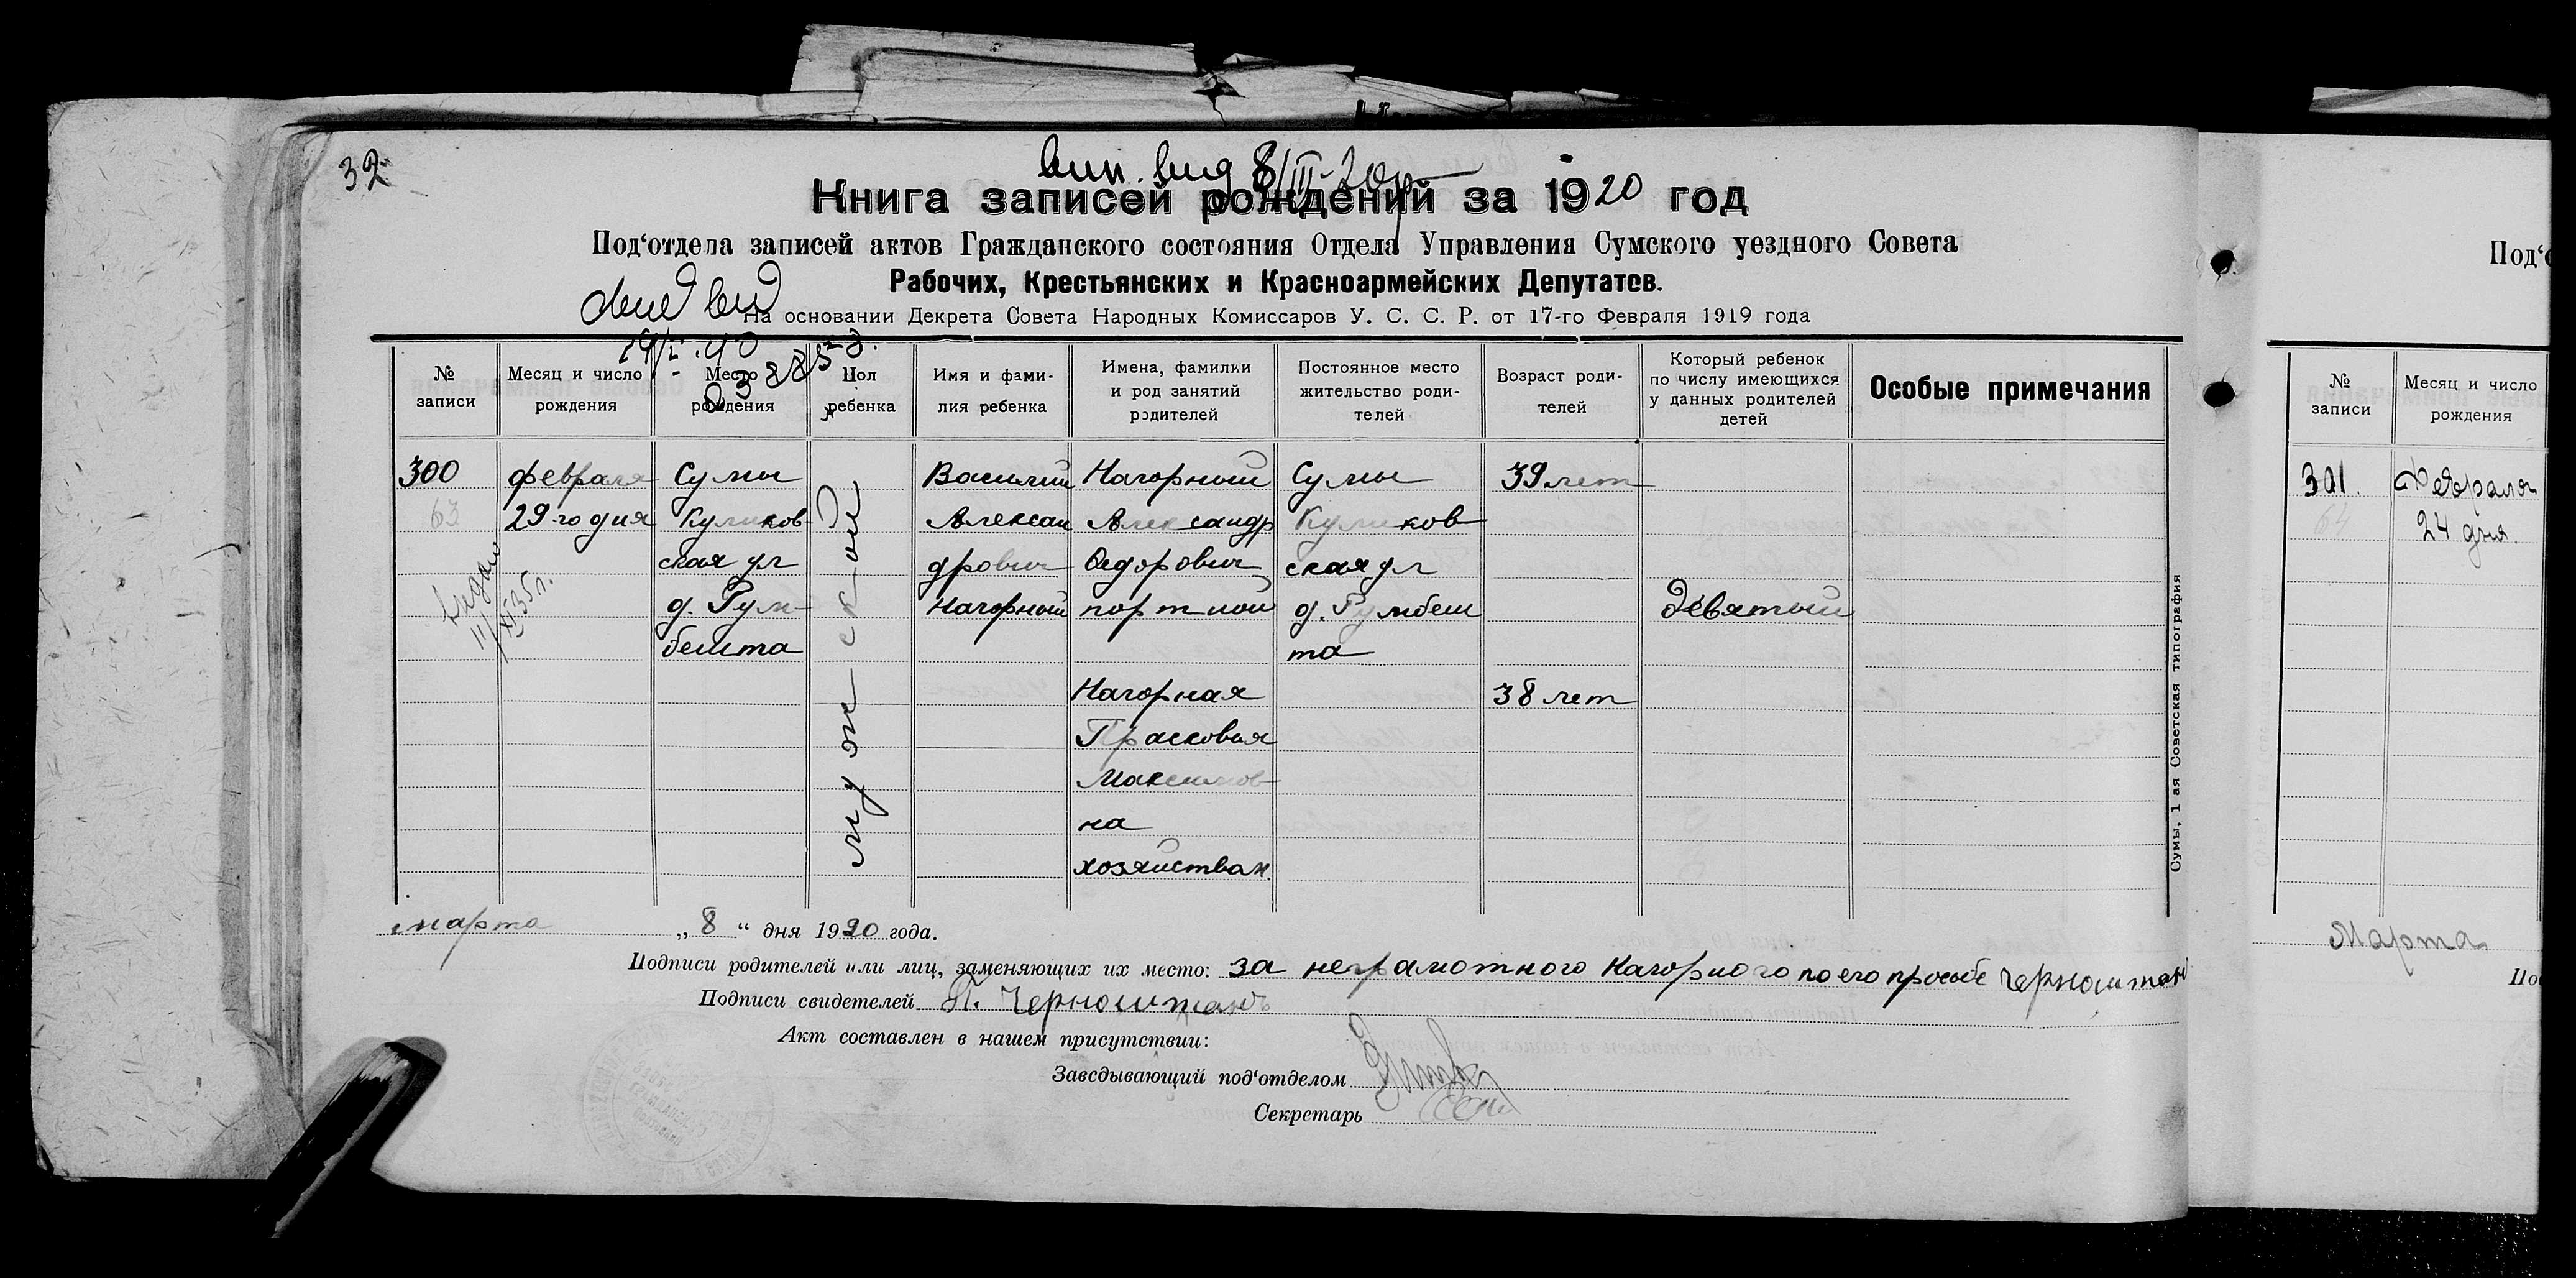 32
вип. вид 8/III-20 р
Книга записей рождений за 1920 год
Под‘отдела записей актов Гражданского состояния Отдела Управления Сумского уездного Совета
Рабочих, Крестьянских и Красноармейских Депутатов.
На основании Декрета Совета Народных Комиссаров У. С. С. Р. от 17-го Февраля 1919 года
№ записи
Месяц и число рождения
Место рождения
Пол ребенка
Имя и фами-
лия ребенка
Имена, фамилии
и род занятий
родителей
Постоянное место
жительство роди-
телей
Возраст роди-
телей
Который ребенок
по числу имеющихся
у данных родителей
детей
Особые примечания
300
63
февраля
29-го дня
Сумы
Куликов
ская ул
д. Рум-
бешта
мужской
Василий
Алексан
дрович
Нагорный
Нагорный
Александр
Федорович
портной
Нагорная
Прасковья
Максимов-
на
хозяйствам.
Сумы
Куликов
ская ул
д. Румбеш
та
39 лет
38 лет
Девятый
марта „8“ дня 1920 года.
Подписи родителей или лиц, заменяющих их место: за неграмотного Нагорного по его просьбе Черноштан
Подписи свидетелей П. Черноштанъ
Акт составлен в нашем присутствии:
Заведывающий под‘отделом
Секретарь
Сумы, 1 ая Советская типография
Под‘о
№ записи
Месяц и число
рождения
301.
64
Февраля
24 дня.
Марта
Под